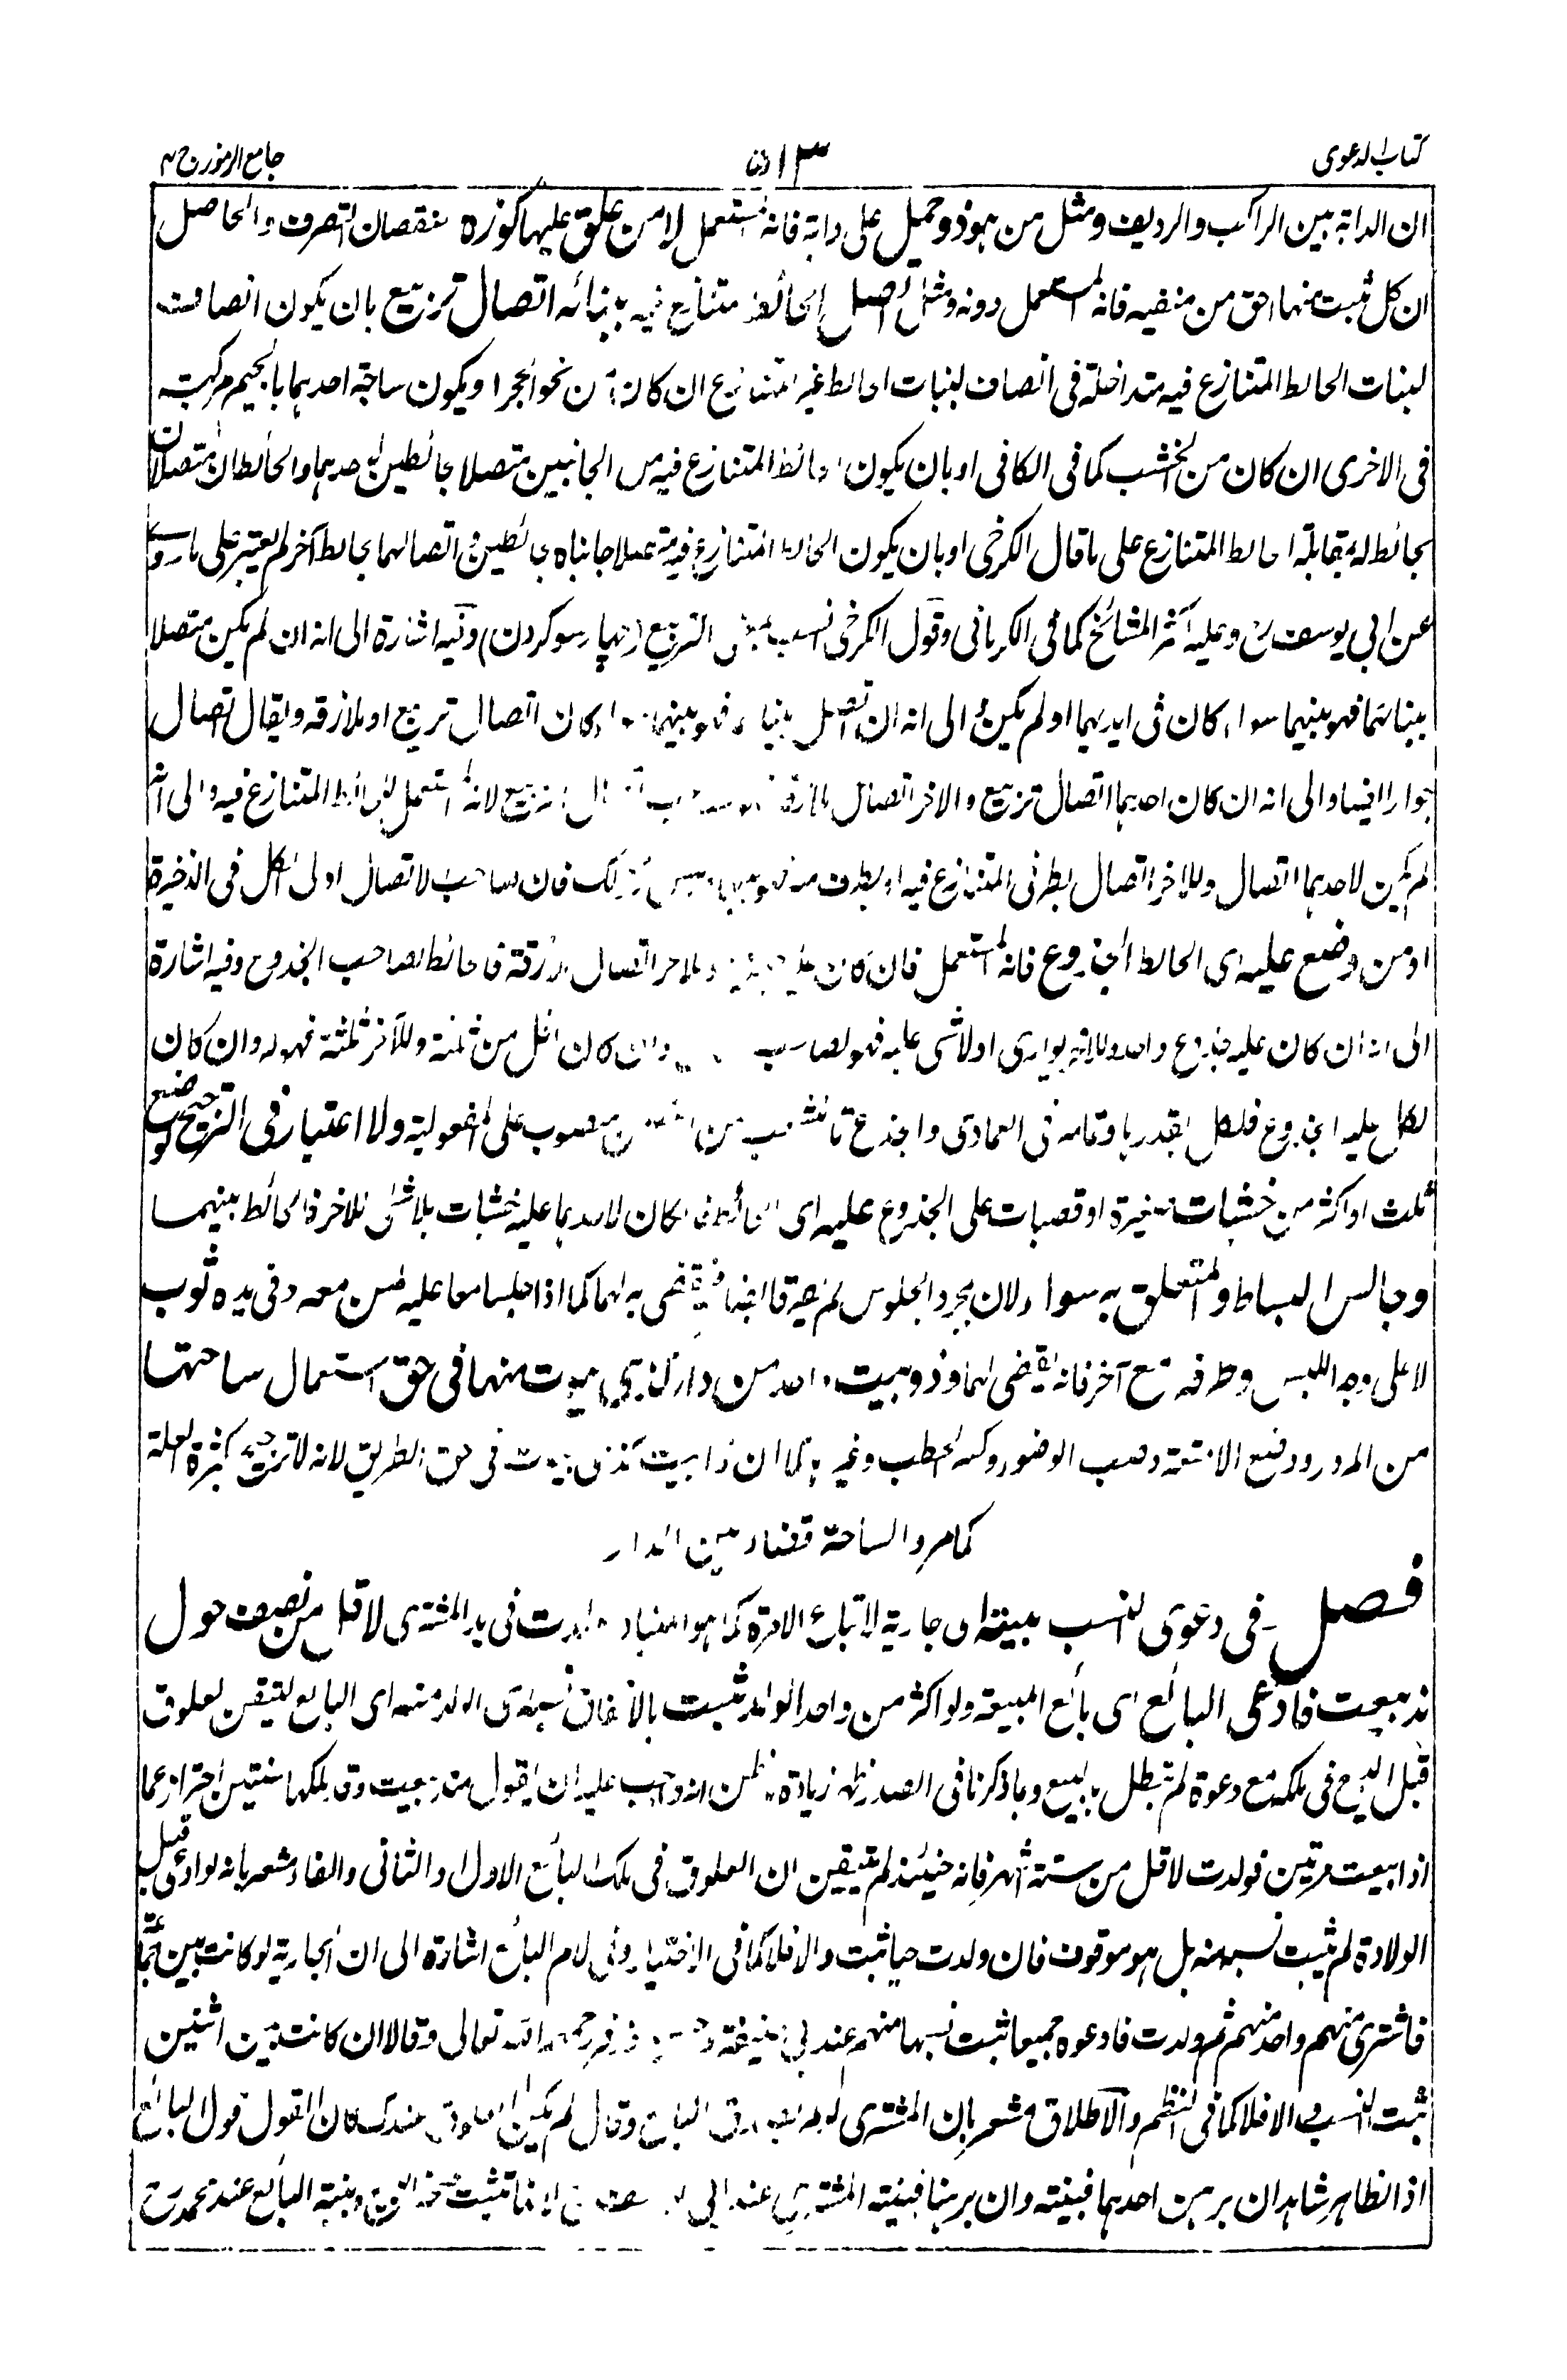 كتاب الدعوى ٥١٣ جامع الرموز ج ٢
ان الدابة بين الراكب والرديف ومثل من هو ذو حمل على دابة فانه المستعمل لا من علق عليها كوزه لنقصان التصرف والحاصل
ان كل مثبت منها احق من منفيه فانه المستعمل دونه ومثل الحائط متنازع فيه ببنائه اتصال تربيع بان يكون انصاف
لبنات الحائط المتنازع فيه متداخلة فى انصاف لبنات الحائط غير المتنازع ان كان من نحو الحجر او يكون ساجة احدهما بالجيم مركبة
فى الاخرى ان كان من الخشب كما فى الكافى او بان يكون الحائط المتنازع فيه من الجانبين متصلا بحائطين لاحدهما والحائطان متصلان
بحائط له بمقابلة الحائط المتنازع على ما قال الكرخى او بان يكون الحائط المتنازع فيه متصلا جانباه بحائطين واتصالهما بحائط آخر لم يعتبر على ما روى
عن ابى يوسف رح وعليه اكثر المشائخ كما فى الكرمانى وقول الكرخى انسب بمعنى التربيع (چهار سو كردن) وفيه اشارة الى انه ان لم يكن متصلا
ببنائهما فهو بينهما سواء كان فى ايديهما او لم يكن والى انه ان اتصل ببنائهما فهو بينهما سواء كان اتصال تربيع او ملازقة ويقال اتصال
جوار ايضا والى انه ان كان احدهما اتصال تربيع والاخر اتصال ملازقة تربيع لانه المستعمل للحائط المتنازع فيه والى انه
لم يكن لاحدهما اتصال وللاخر اتصال بطرفى المتنازع فيه او بطرف منه فهو كذلك فان صاحب الاتصال اولى الكل فى الذخيرة
او من وضع عليه اى الحائط الجذوع فانه المستعمل فان كان وللاخر اتصال ملازقة فالحائط لصاحب الجذوع وفيه اشارة
الى انه ان كان عليه جذوع واحد وللاخر بوارى او لا شى عليه فهو لصاحب وان كان اقل من ثلثة وللآخر ثلثة فهو له وان كان
لكل عليه الجذوع فلكل بقدرها وتمامه فى العمادى والجذع منصوب على المفعولية ولا اعتبار فى الترجيح لوضع
ثلث او اكثر من خشبات صغيرة او قصبات على الجذوع عليه اى الحائط فلو كان لاحدهما عليه خشبات بلا شى للاخر فالحائط بينهما
وجالس البساط والمتعلق به سواء لان بمجرد الجلوس لم يقضى به لهما كما اذا جلسا معا عليه كمن معه وفى يده ثوب
لا على وجه اللبس وطرفه مع آخر فانه يقضى لهما وذو بيت واحد من دار كذى بيوت منها فى حق استعمال ساحتها
من المرور ووضع الامتعة وصب الوضوء وكسر الحطب وغيرها كما ان ذا بيت كذى بيوت فى حق الطريق لانه لا ترجيح بكثرة العلة
كما مر والساحة فضاء بين الدار
فصل فى دعوى النسب مبيعة اى جارية ولدت فى يد المشترى لاقل من نصف حول
مذ بيعت فادعى البائع اى بائع المبيعة ولو اكثر من واحد الولد ثبت نسبه اى الولد منه اى البائع لتيقن العلوق
قبل البيع فى ملكه مع دعوة لم تبطل بالبيع وبما ذكرنا فى الصدر ظهر زيادة من ظن انه وجب عليه ان يقول منذ بيعت وقد ملكها سنتين احترازا عما
اذا بيعت مرتين فولدت لاقل من ستة اشهر فانه حينئذ لم يتيقن ان العلوق فى ملك البائع الاول او الثانى والفاء مشعر بانه لو ادعى قبل
الولادة لم يثبت نسبه منه بل هو موقوف فان ولدت حيا ثبت والا فلا كما فى الاختيار وفى لام البائع اشارة الى ان الجارية لو كانت بين جماعة
فاشترى منهم واحد منهم ثم ولدت فادعوه جميعا ثبت نسبها منهم عند ابى حنيفة وزفر رحمهم الله تعالى وقالا ان كانت بين اثنين
ثبت النسب والا فلا كما فى النظم والاطلاق مشعر بان المشترى البائع وقال لم يكن العلوق عندك كان القول قول البائع
اذ الظاهر شاهد ان برهن احدهما فبينته وان برهنا فبينة المشترى عند ابى وبينة البائع عند محمد رح